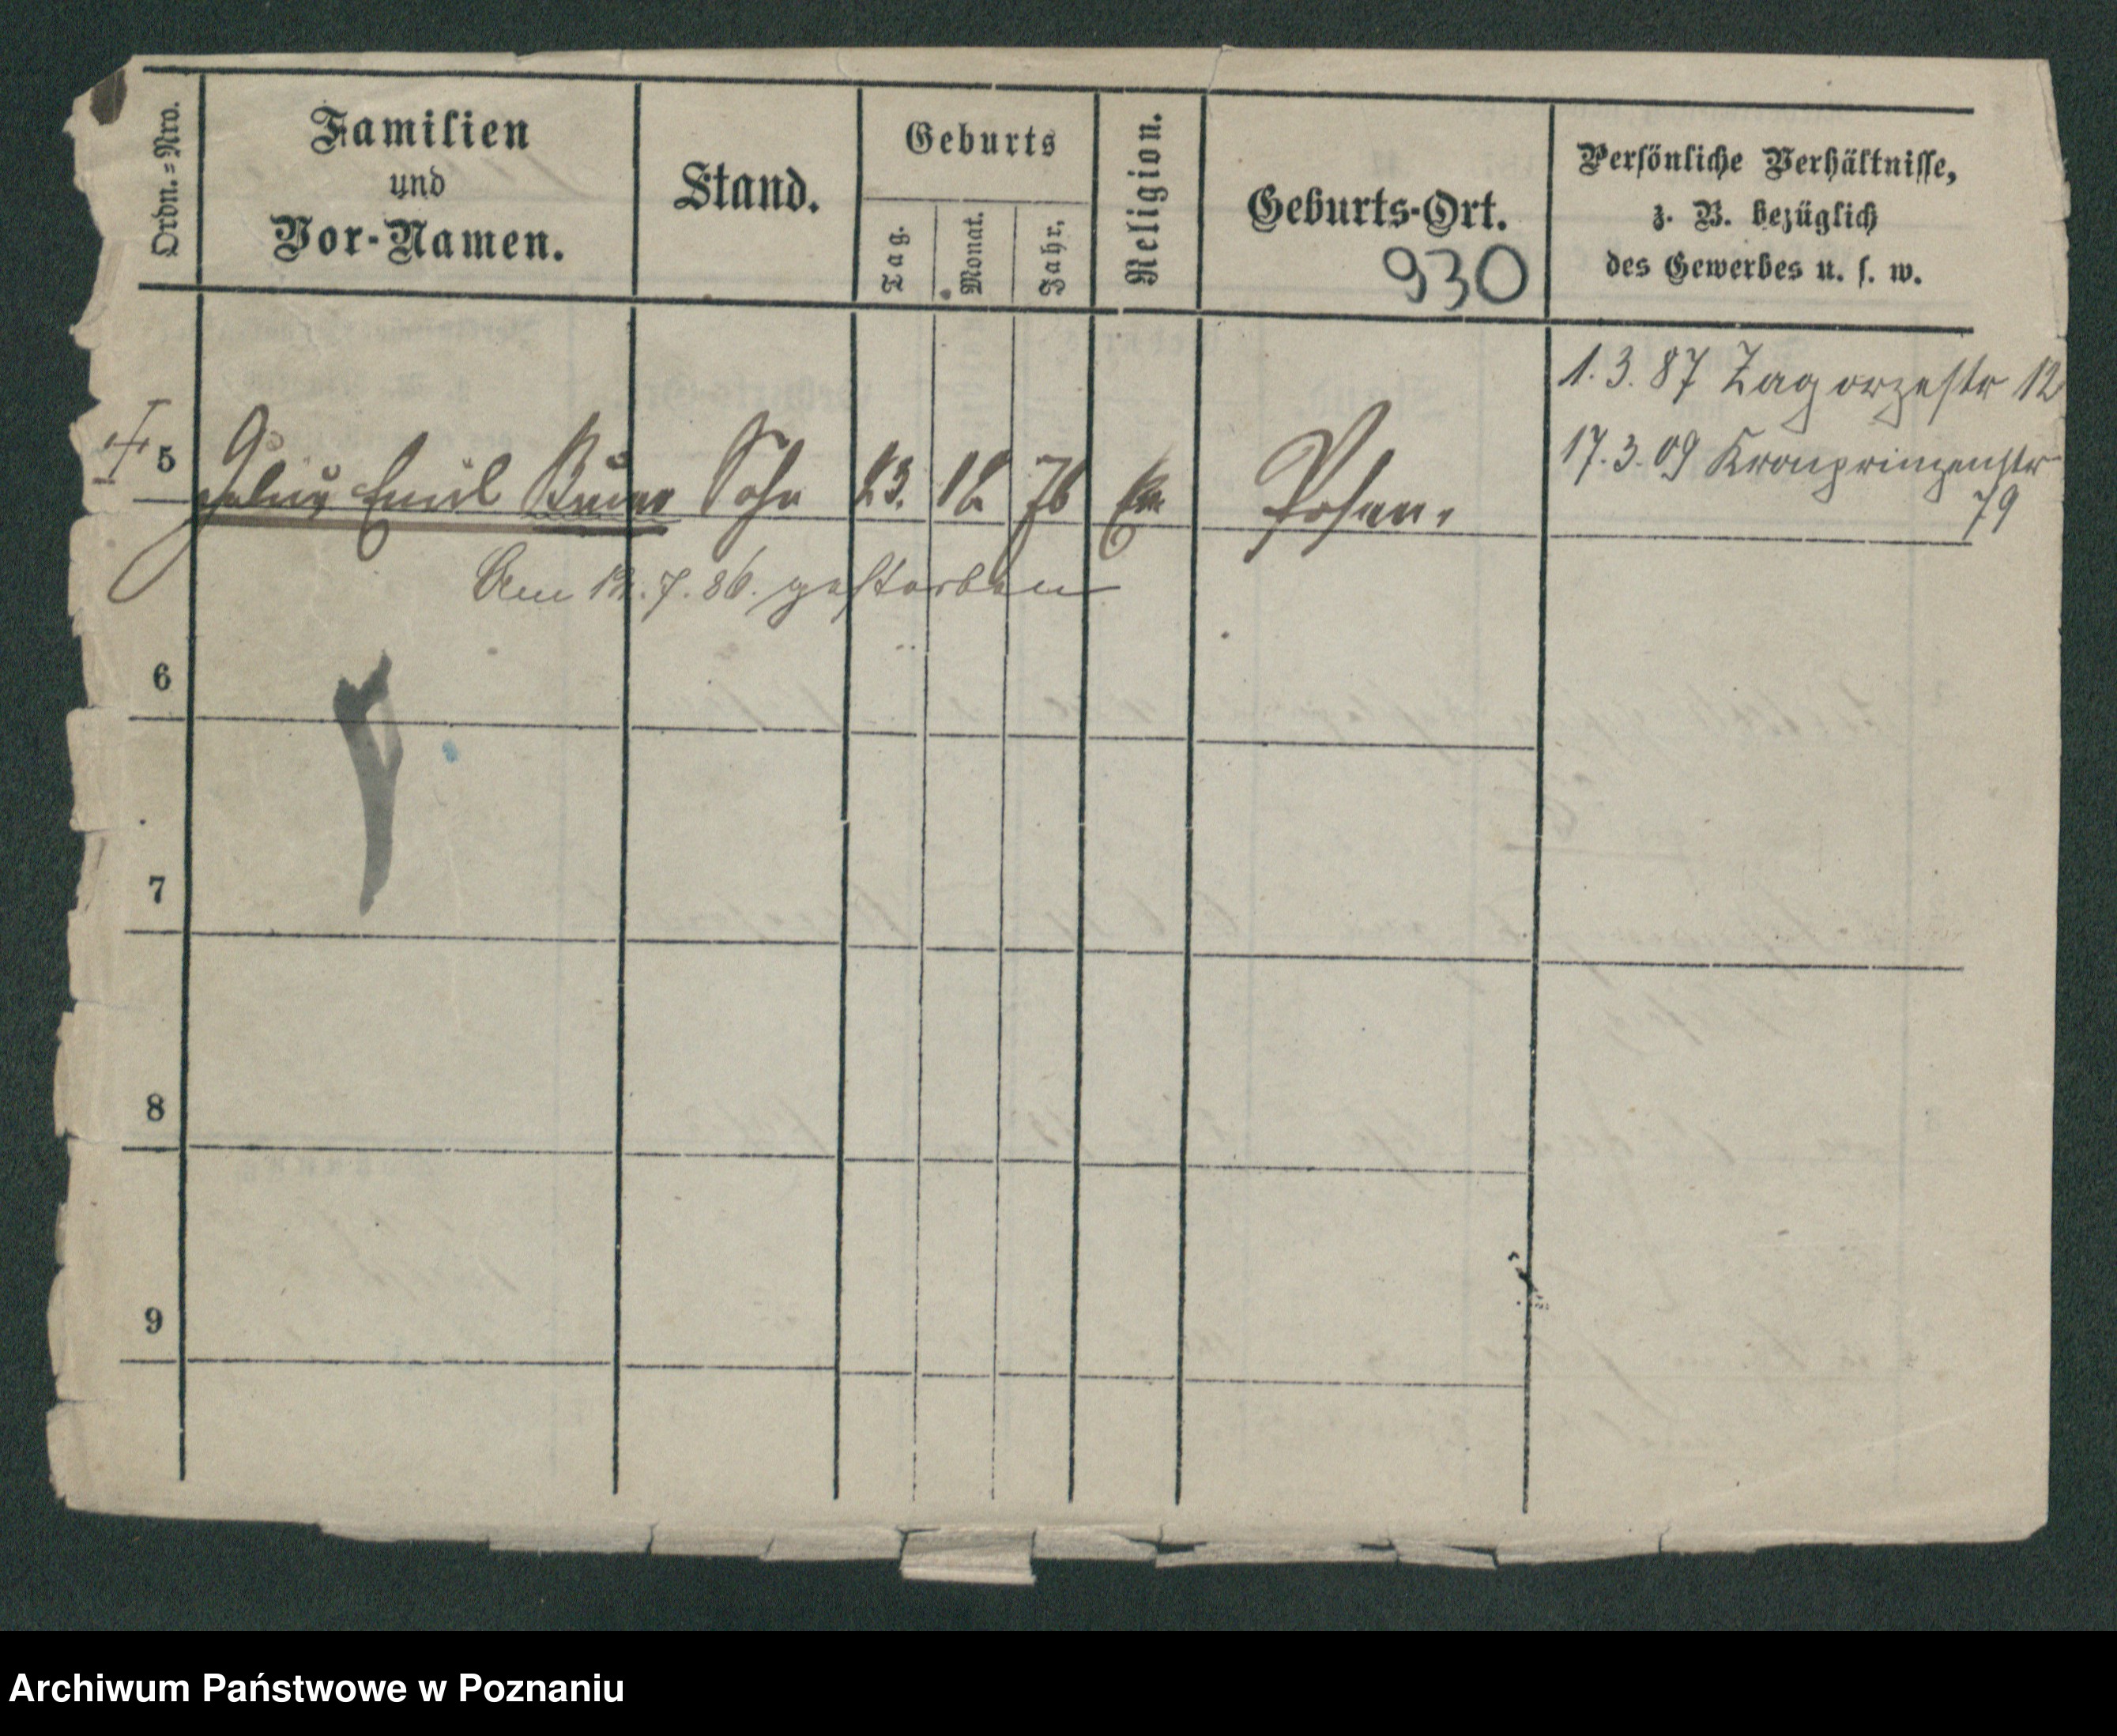 Ordn.=Nro.
Familien
und
Vor-Namen.
Stand.
Geburts
Tag.
Monat.
Jahr.
Religion.
Geburts-Ort.
930
Persönliche Verhältnisse,
z. B. bezüglich
des Gewerbes u. s. w.
1. 3. 87 Zagorzestr 12
17. 3. 09 Kronprinzenstr
79
5 Julius Emil Bruno Sohn 23. 12 76 Ev Posen.
Am 12. 7. 86. gestorben
6
7
8
9
Archiwum Państwowe w Poznaniu